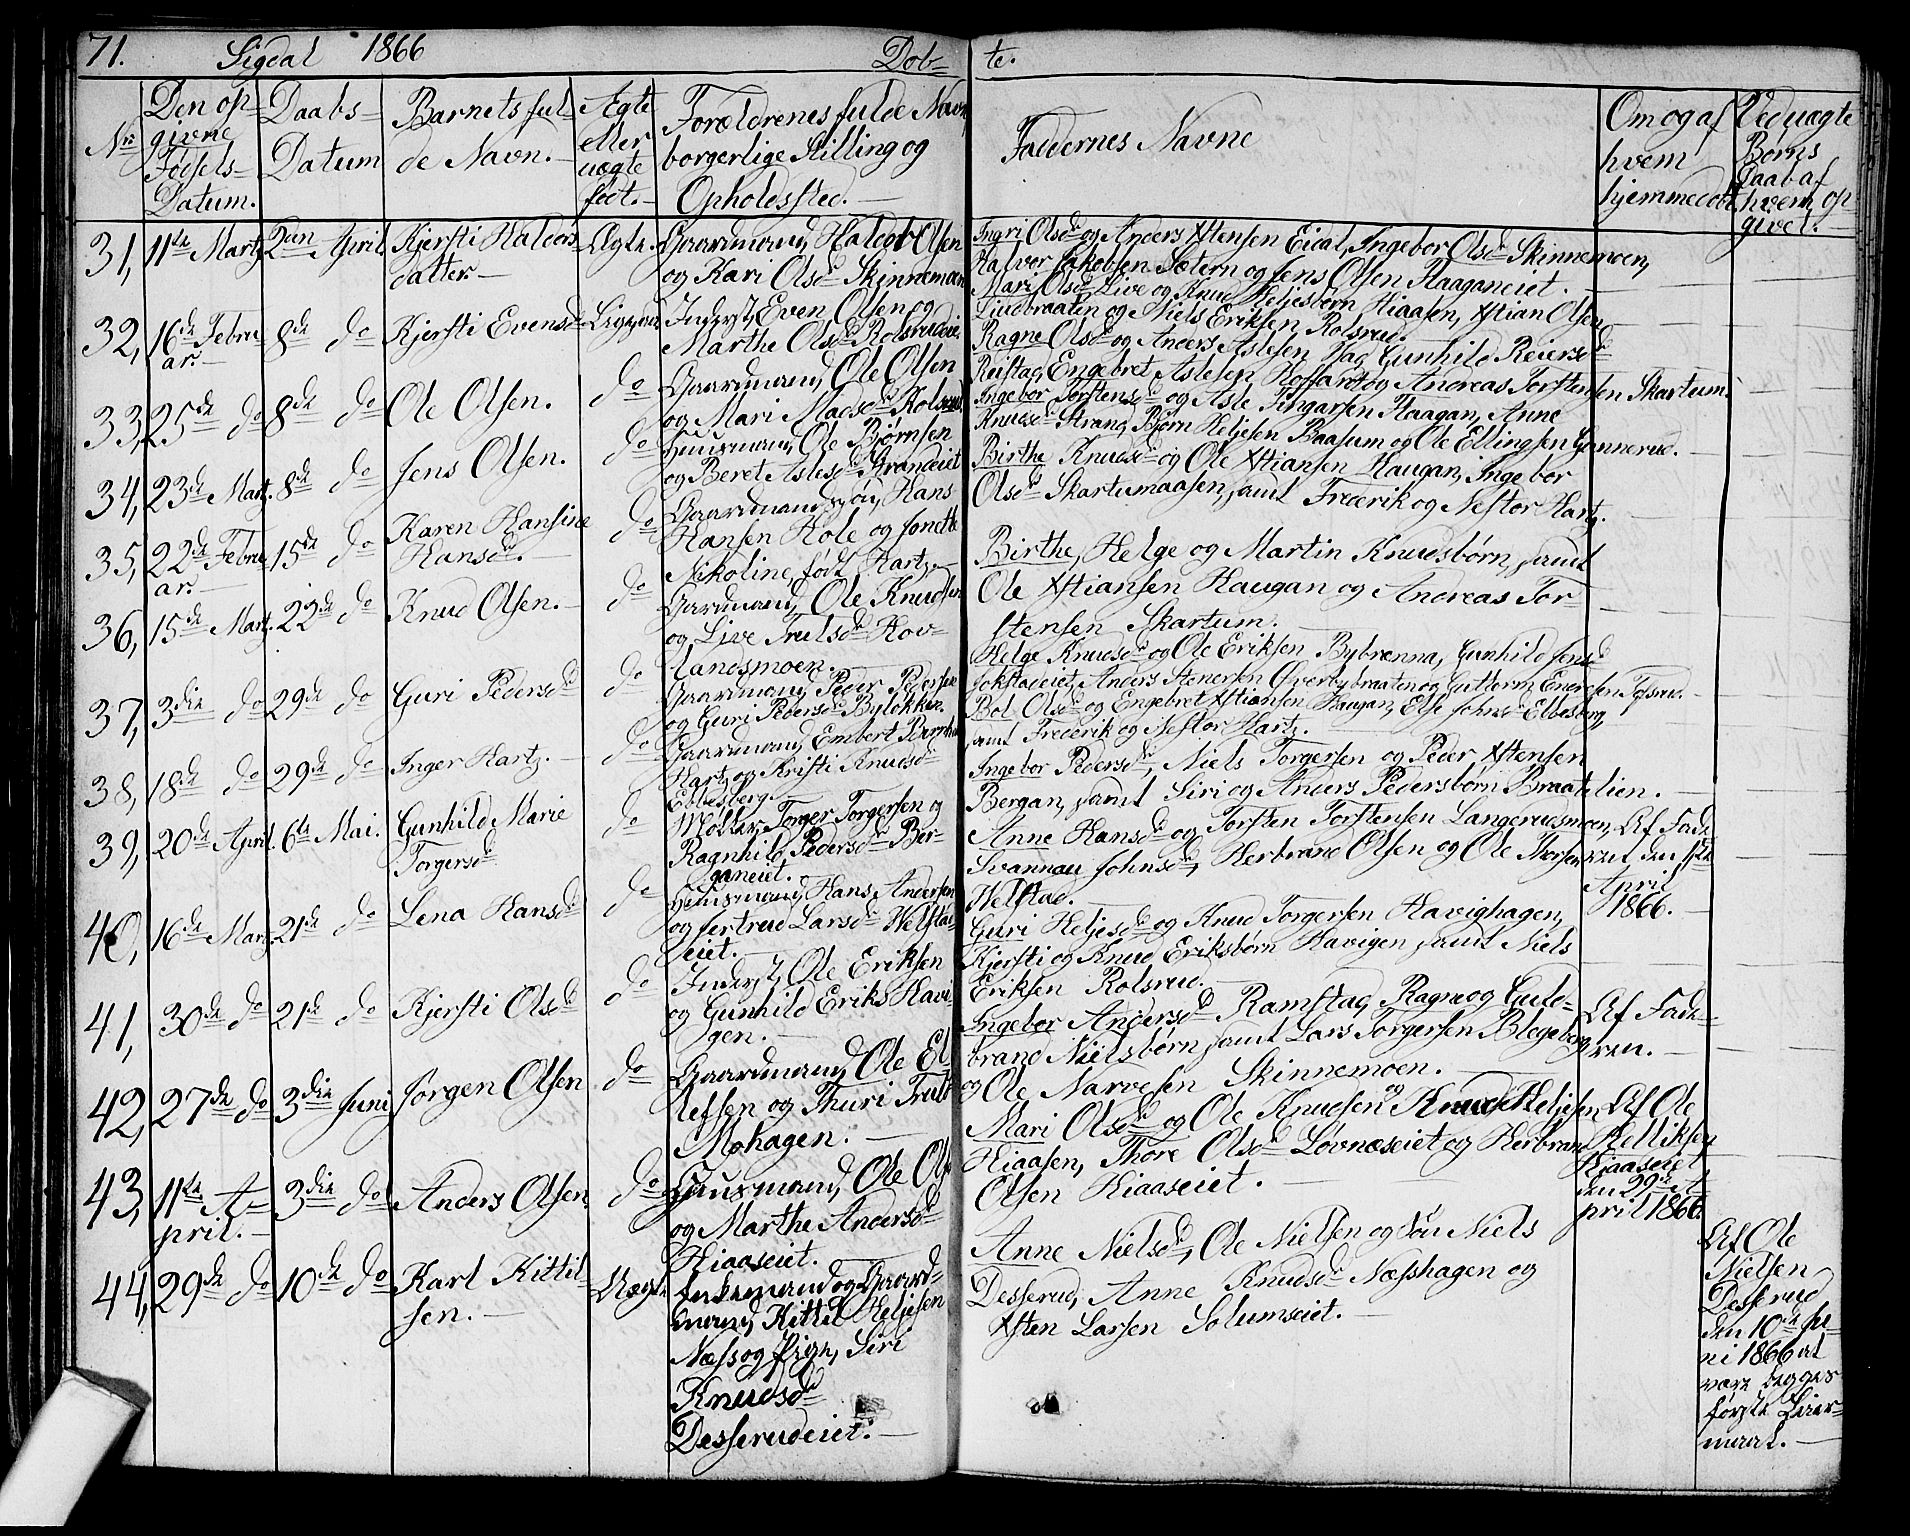 71. Sigdal 1866 Dob= te.
Nr.
Den op=
givne
Fødsels=
Datum.
Daabs=
Datum
Barnets ful=
de Navn.
Ægte
eller
uægte
født.
Forældrenes fulde Navn,
borgerlige Stilling og
Opholdssted.
Faddernes Navne
Om og af
hvem
hjemmedøbt
Ved uægte
Børns
Daab af
hvem op=
givet.
31, 11te Martz 2den April Kjersti Haldors=
datter Ægte.
Gaardmand, Haldor Olsen
og Kari Olsd. Skinnemoen
Ingri Olsd. og Anders Xstensen Eidal, Ingebor Olsd. Skinnemoen,
Halvor Jakobsen Sætern og Jens Olsen Haaganeiet.
32, 16de Febru
ar. 8de do Kjersti Evensd. Ligesaa
Inderst, Even Olsen og
Marthe Olsd. Rolsrudeie.
Mari Olsd. Live og Knud Heljesbørn Hiaasen, Xstian Olsen
Lindbraaten og Niels Eriksen Rolsrud.
33, 25de do 8de do Ole Olsen. do
Gaardmand, Ole Olsen
og Mari Madsd. Rolsrud
Ragne Olsd. og Anders Aslesen Had, Gunhild Reiersd.
Reistad, Engebret Aslesen Hoffart og Andreas Torstensen Skartum.
34, 23de Martz. 8de do Jens Olsen. do
Huusmand, Ole Bjørnsen
og Beret Aslesd. Strandeiet
Ingebor Torstensd. og Asle Tingarsen Haagan, Anne
Knudsd. Strand, Bjørn Heljesen Baasum og Ole Ellingsen Gunnerud.
35, 22de Febru
ar. 15de do Karen Hansine
Hansd. do
Gaardmandssøn, Hans
Hansen Hole og Jonette
Nikoline, født Hartz.
Birthe Knudsd. og Ole Xstiansen Haugan, Ingebor
Olsd. Skartumaasen, samt Frederik og Nestor Hartz.
36, 15de Martz. 22de do Knud Olsen. do
Gaardmand, Ole Knudsen
og Live Trulsd. Hov=
landsmoen.
Birthe, Helge og Martin Knudsbørn, samt
Ole Xstiansen Haugan og Andreas Tor=
stensen Skartum.
37, 3die do 29de do Guri Pedersd. do
Gaardmand, Peder Pedersen
og Guri Pedersd. Byløkken.
Helge Knudsd. og Ole Eriksen Bybrænna, Gunhild Jensd.
Jokstadeiet, Anders Stenersen Øverbybraaten og Guttorm Endresen Tofsrud.
38, 18de do 29de do Inger Hartz. do
Gaardmand, Embert
Hartz og Kristi Knudsd.
Ebbesberg.
Bol Olsd. og Engebret Xstiansen Haugan, Else Johnsd. Ebbesberg,
samt Frederik og Nestor Hartz.
39, 20de April. 6te Mai. Gunhild Marie
Torgersd. do
Møller, Torger Torgersen og
Ragnhild Pedersd. Ber=
ganeiet.
Ingebor Pedersd., Niels Torgersen og Peder Xstensen
Bergan, samt Siri og Anders Pedersbørn Braatelien.
40, 16de Martz. 21de do Lena Hansd. do
Huusmand, Hans Andersen
og Jertrud Larsd. Welstad=
eiet.
Anne Hansd. og Torsten Torstensen Langerudsmoen,
Svannau Johnsd., Herbrand Olsen og Ole Thorsen
Welstad.
Af Fade=
ren, den 1ste
April
1866.
41, 30de do 21de do Kjersti Olsd. do
Inderst, Ole Eriksen
og Gunhild Eriks Havi=
gen.
Guri Heljesd. og Knud Torgersen Havighagen,
Kjersti og Knud Eriksbørn Havigen samt Niels
Eriksen Rolsrud.
42, 27de do 3die Juni Jørgen Olsen do
Gaardmand, Ole El=
lefsen og Thuri Truls
Mohagen.
Ingebor Andersd. Ramstad, Ragne og Gulb=
brand Nielsbørn, samt Lars Torgersen Blegeberg
og Ole Narvesen Skinnemoen.
Af Fade=
ren.
43, 11te A=
pril. 3die do Anders Olsen. do
Huusmand, Ole Ols
og Marthe Andersd.
Hiaaseiet.
Mari Olsd. og Ole Knudsen og Knud Heljesen
Hiaasen, Thore Olsd. Løvnæseiet og Herbrand
Olsen Hiaaseiet.
Af Ole
Kittilsen
Hiaaseiet
den 29de A=
pril 1866.
44, 29de do 10de do Karl Kittil=
sen. Uægte
Enkemand og Gaard=
mand, Kittil Heljesen
Næss og Pige, Siri
Knudsd.
Desserudeiet.
Anne Nielsd., Ole Nielsen og Søn Niels
Desserud, Anne Knudsd. Næsshagen og
Xsten Larsen Solumseiet.
Af Ole
Nielsen
Desserud
den 10de Ju=
ni 1866 at
være begges
første Leier=
maal.